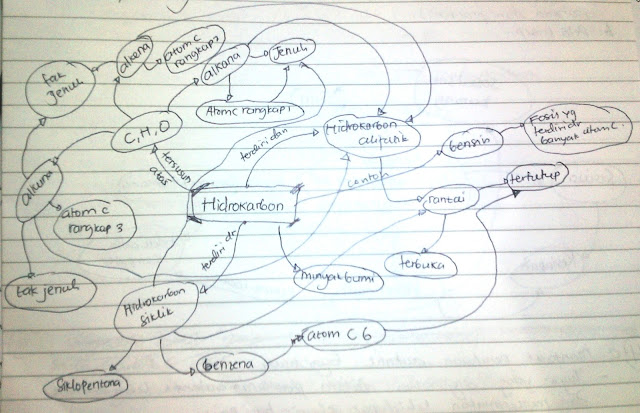 alkena
atom C
rangkap 2
alkana
Jenuh
tak
jenuh
Atom C rangkap 1
C, H, O
Hidrokarbon
alifatik
bensin
Fosil yg
terdiri dr
banyak atom C.
terdiri dari
tersusun
atas
contoh
alkuna
Hidrokarbon
rantai
tertutup
atom C
rangkap 3
terdiri dr
terbuka
minyak bumi
tak jenuh
Hidrokarbon
siklik
atom C 6
benzena
Siklopentana